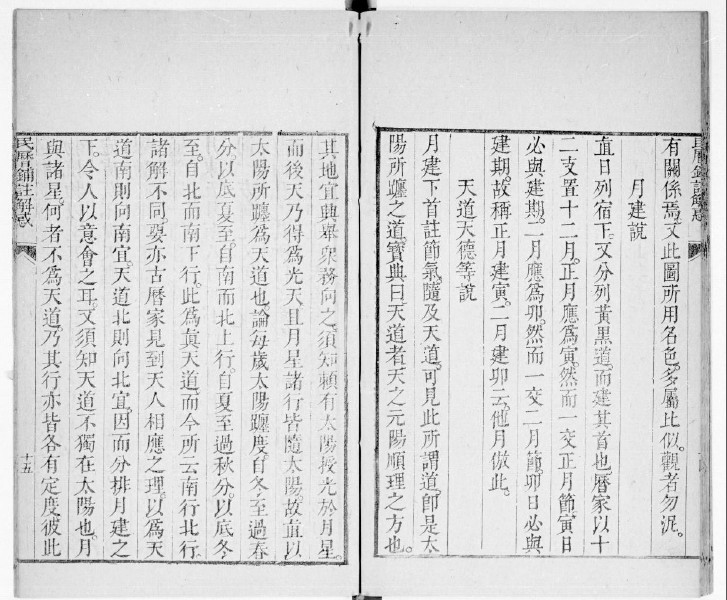 有關係焉。又此圖所用名色。多屬比似。觀者勿泥。
月建說
直日列宿下。又分列黃黑道。而建其首也。曆家以十
二支置十二月。正月應爲寅。然而一交正月節。寅日
必與建期。二月應爲卯。然而一交二月節。卯日必與
建期。故稱正月建寅。二月建卯云。他月倣此。
天道天德等說
月建下首註節氣。隨及天道。可見此所謂道。卽是太
陽所躔之道。寶典曰天道者天之元陽順理之方也。
其地宜興舉衆務向之。須知賴有太陽授光於月星。
而後天乃得爲光天且月星諸行皆隨太陽。故直以
太陽所躔爲天道也。論每歲太陽躔度。自冬至過春
分以底夏至。自南而北上行。自夏至過秋分。以底冬
至。自北而南下行。此爲眞天道而今所云南行北行
諸解不同。要亦古曆家見到天人相應之理。以爲天
道南則向南宜。天道北則向北宜。因而分排月建之
下。令人以意會之耳。又須知天道不獨在太陽也。月
與諸星。何者不爲天道。乃其行亦皆各有定度彼此
民曆鋪註解惑
十五